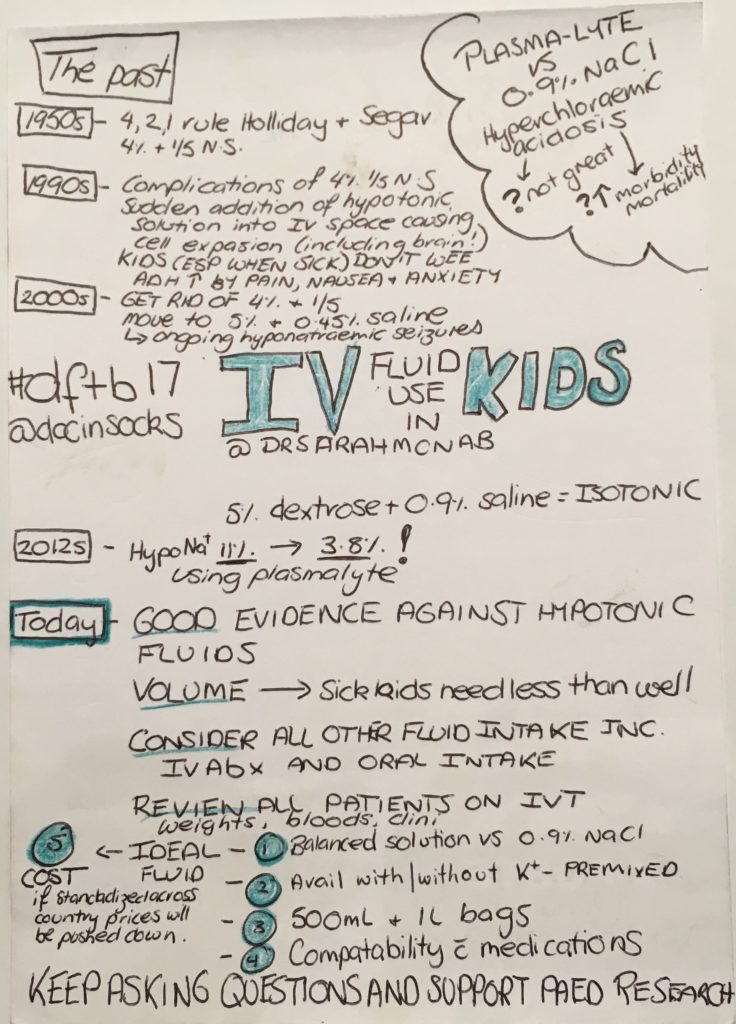 The past
1950s - 4,2,1 rule Holliday + Segar
4% + 1/5 N.S.
1990s - Complications of 4% 1/5 N.S
Sudden addition of hypotonic
solution into IV space causing
cell expasion (including brain!)
KIDS (ESP WHEN SICK) DON'T WEE
ADH ↑ BY PAIN, NAUSEA + ANXIETY
2000s - GET RID OF 4% + 1/5
move to 5% + 0.45% saline
↳ ongoing hyponatraemic seizures
PLASMA-LYTE
VS
0.9% NaCl
Hyperchloraemic
acidosis
↓ ↓
? not great
?↑ morbidity
mortality
#dftb17
@docinsocks
IV FLUID USE IN KIDS
@DRSARAHMCNAB
5% dextrose + 0.9% saline = ISOTONIC
2012s - Hypo Na⁺ 11% → 3.8%!
using plasmalyte!
Today - GOOD EVIDENCE AGAINST HYPOTONIC
FLUIDS
VOLUME → Sick kids need less than well
CONSIDER ALL OTHER FLUID INTAKE INC.
IV Abx AND ORAL INTAKE
REVIEW ALL PATIENTS ON IVT
weights, bloods, clini
5 ← IDEAL - 1 Balanced solution vs 0.9% NaCl
COST FLUID - 2 Avail with/without K⁺ - PREMIXED
if standadized across
country prices will
be pushed down.
- 3 500mL + 1L bags
- 4 Compatability c̄ medications
KEEP ASKING QUESTIONS AND SUPPORT PAED RESEARCH